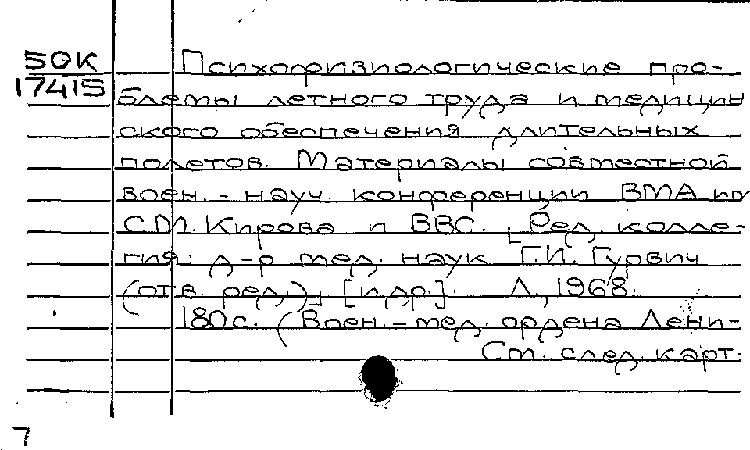 50К
17415
Психофизиологические про-
блемы летного труда и медицин
ского обеспечения длительных
полетов. Материалы совместной
воен.-науч. конференции ВМА им
С.М. Кирова и ВВС. [Ред. колле-
гия: д-р мед. наук Г.И. Гурвич
(отв. ред.)] [и др.]. Л., 1968.
180с. (Воен.-мед. ордена Лени-
См. след. карт.
7